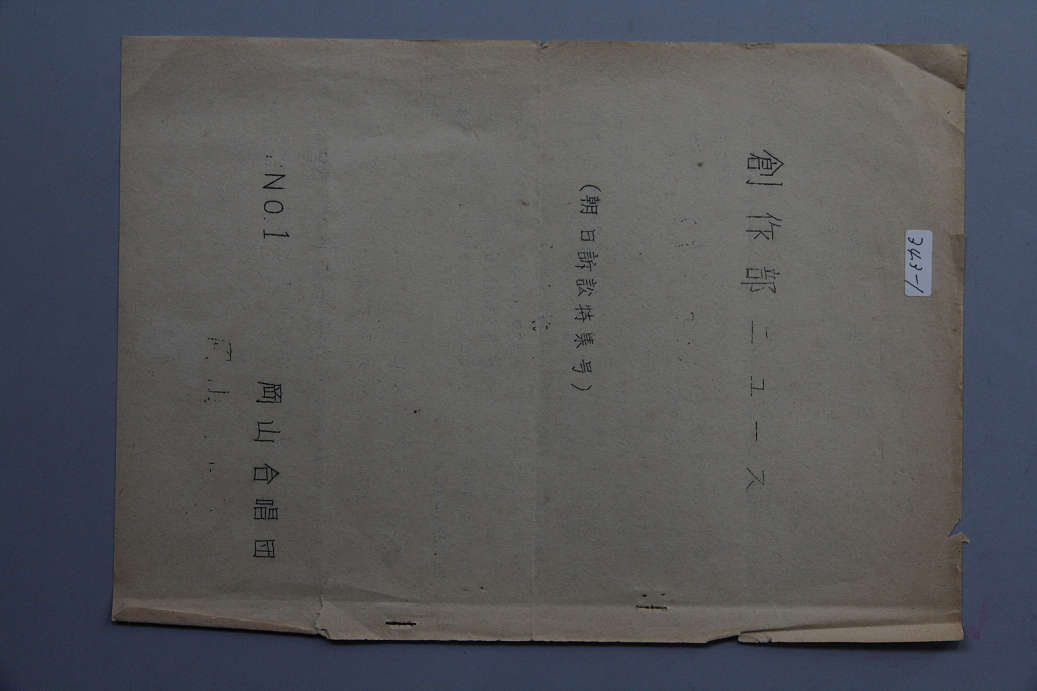 243-1
創作部ニュース
(朝日訴訟特集号)
NO.1
岡山合唱団